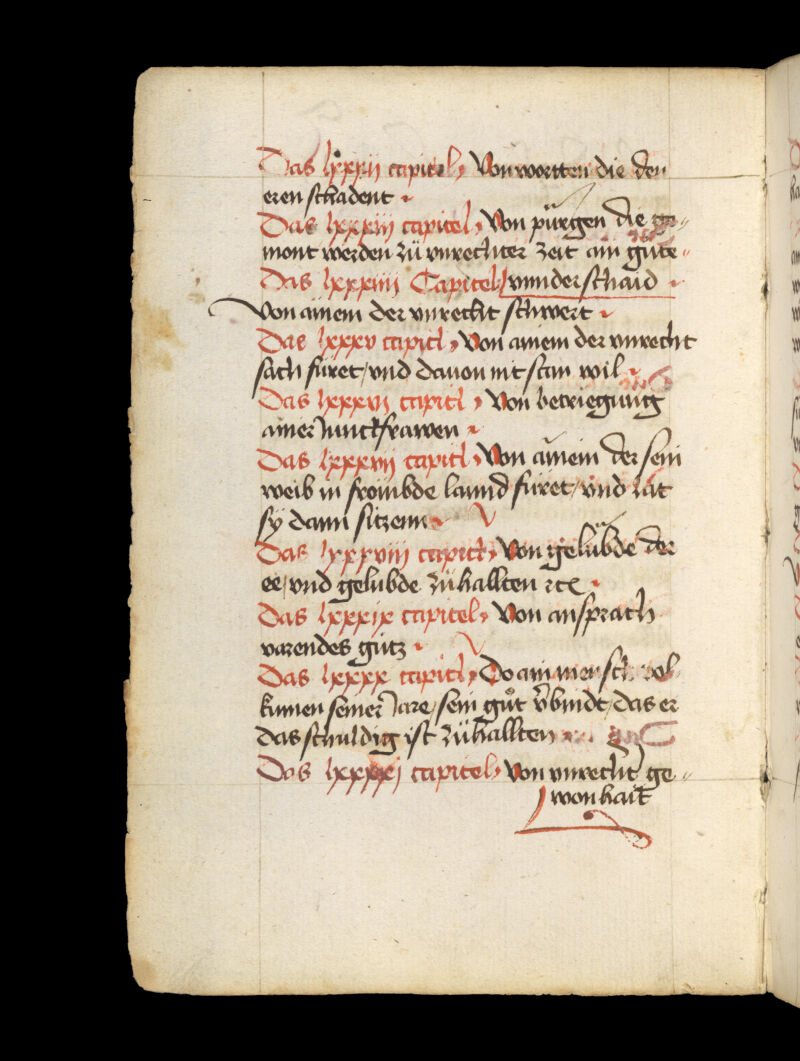 Das lxxxij capitel, Von wortten die den
eren schadent
Das lxxxiij capitel, Von pürgen die ge=
mont werden zů vnrechter zeit am güte
Das lxxxiiij Capitel vnnderschaid
Von ainem der vnrecht schwert
Das lxxxv capitl, Von ainem der vnrecht
sach füret / vnd dauon nit stan wil
Das lxxxvi capitl, Von betriegung
ainer Junckfrawen
Das lxxxvij capitl, Von ainem der sein
weib in frombde lannd füret / vnd lät
sÿ dann sitzenn
Das lxxxviij capitl, Von gelübde der
ee / vnd gelübde zůhallten ꝛcꝭ
Das lxxxix capitel, Von ansprach
varendes gůtz
Das lxxxx capitl, Do ain mensch vol
kumen seiner Jare / sein gůt v̈bindt / das er
das schuldig ist zůhallten
Das lxxxxi capitel, Von vnrecht ge=
wonhait